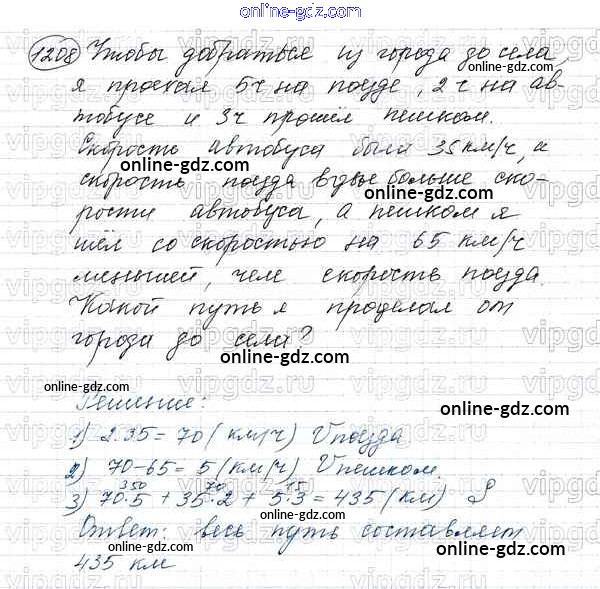 online-gdz.com
1208 Чтобы добраться из города до села,
я проехал 5 ч на поезде, 2 ч на ав-
тобусе и 3ч прошёл пешком.
Скорость автобуса была 35 км/ч, а
online-gdz.com
скорость поезда вдвое больше ско-
рости автобуса, а пешком я
online-gdz.com
шёл со скоростью на 65 км/ч
меньшей, чем скорость поезда.
Какой путь я проделал от
города до села?
online-gdz.com
online-gdz.com
online-gdz.com
Решение:
1) 2·35 = 70 (км/ч) Vпоезда
online-gdz.com
2) 70-65 = 5 (км/ч) Vпешком
350 70 15
3) 70·5 + 35·2 + 5·3 = 435 (км) S
online-gdz.com
Ответ: весь путь составляет
435 км
online-gdz.com